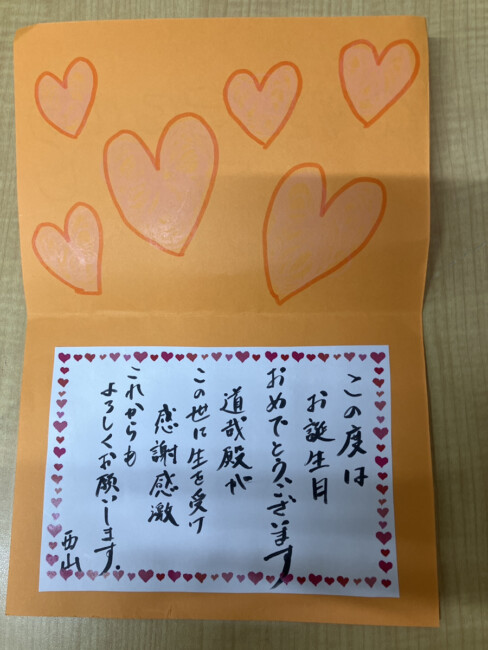 この度は
お誕生日
おめでとうございます
道哉殿が
この世に生を受け
感謝感激
これからも
よろしくお願いします。
西山